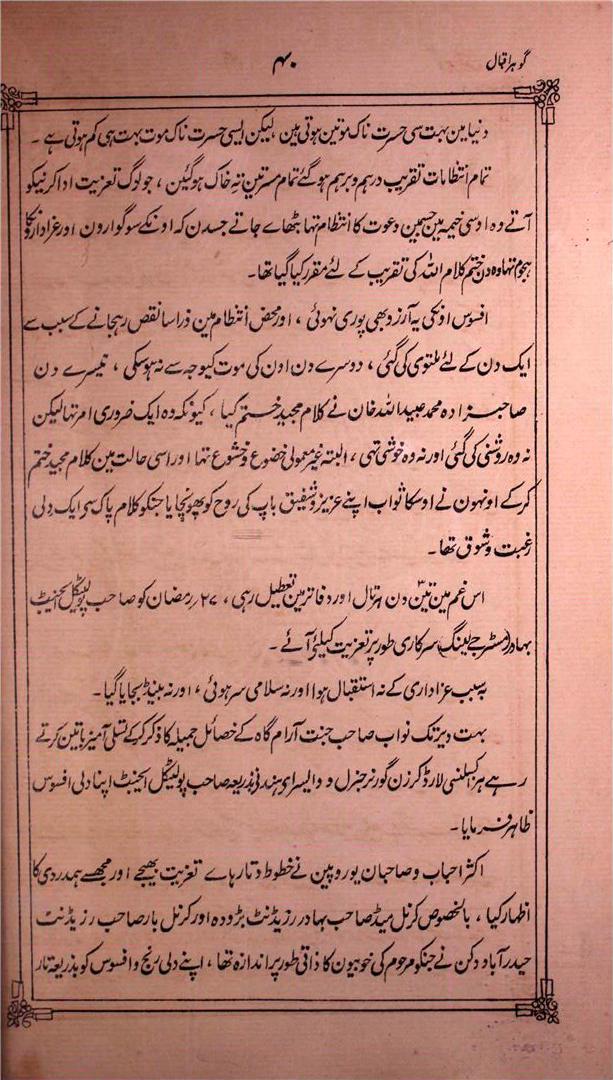 گوہر اقبال
۴۰
دنیا مین بہت سی حسرت ناک موتین ہوتی ہین ، لیکن ایسی حسرت ناک موت بہت ہی کم ہوتی ہے ۔
تمام انتظامات تقریب درہم و برہم ہوگئے تمام مسرتین تہِ خاک ہوگئین ، جو لوگ تعزیت ادا کرنیکو
آتے وہ اوسی خیمہ مین جسمین دعوت کا انتظام تہا بٹھاے جاتے جسدن کہ اونکے سوگوارون اور عزادارونکا
ہجوم تہا وہ دن ختم کلام اللہ کی تقریب کے لئے مقرر کیا گیا تھا۔
افسوس اونکی یہ آرزو بھی پوری نہوئی ، اور محض انتظام مین ذرا سا نقص رہجانے کے سبب سے
ایک دن کے لئے ملتوی کی گئی ، دوسرے دن اون کی موت کیوجہ سے نہ ہوسکی ، تیسرے دن
صاحبزادہ محمد عبید اللہ خان نے کلام مجید ختم کیا ، کیونکہ وہ ایک ضروری امر تہا لیکن
نہ وہ روشنی کی گئی اور نہ وہ خوشی تہی ، البتہ غیر معمولی خضوع و خشوع تہا اور اسی حالت مین کلام مجید ختم
کرکے اونہون نے اوسکا ثواب اپنے عزیز و شفیق باپ کی روح کو پھونچایا جنکو کلام پاک سے ایک دلی
رغبت و شوق تھا۔
اس غم مین تین دن ہڑتال اور دفاتر مین تعطیل رہی ، ۲۷ رمضان کو صاحب پولیٹیکل ایجنٹ
بہادر (مسٹر جے لینگ) سرکاری طور پر تعزیت کیلئے آئے ۔
بہ سبب عزاداری کے نہ استقبال ہوا اور نہ سلامی سر ہوئی ، اور نہ بینڈ بجایا گیا۔
بہت دیر تک نواب صاحب جنت آرام گاہ کے خصائل جمیلہ کا ذکر کرکے تسلی آمیز باتین کرتے
رہے ہز اکسلنسی لارڈ کرزن گورنر جنرل و وایسراے ہند نے بذریعہ صاحب پولٹیکل ایجنٹ اپنا دلی افسوس
ظاہر فرمایا۔
اکثر احباب و صاحبان یوروپین نے خطوط و تارہاے تعزیت بھیجے اور مجھسے ہمدردی کا
اظہار کیا ، بالخصوص کرنل میڈ صاحب بہادر رزیڈنٹ بڑودہ اور کرنل بار صاحب رزیڈنٹ
حیدرآباد دکن نے جنکو مرحوم کی خوبیون کا ذاتی طور پر اندازہ تھا ، اپنے دلی رنج و افسوس کو بذریعہ تار